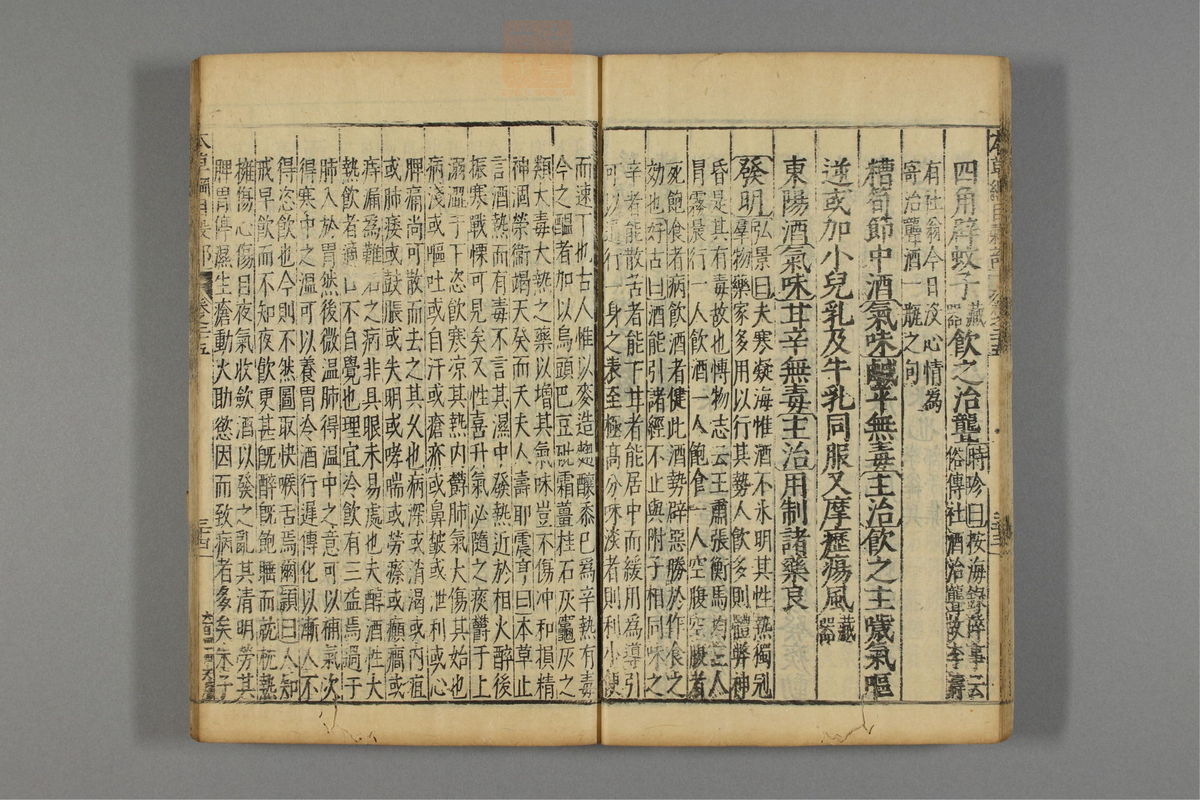 四角辟蚊子藏器飲之治聾時珍曰按海錄碎事云
俗傳社酒治聾故李濤
有社翁今日沒心情為
寄治聾酒一瓶之句
糟筍節中酒氣味鹹平無毒主治飲之主噦氣嘔
逆或加小兒乳及牛乳同服又摩癧瘍風藏器
東陽酒氣味甘辛無毒主治用制諸藥良
發明弘景曰大寒凝海惟酒不氷明其性熱獨冠
群物藥家多用以行其勢人飲多則體弊神
昏是其有毒故也博物志云王肅張衡馬均三人
冒霧晨行一人飲酒一人飽食一人空腹空腹者
死飽食者病飲酒者健此酒勢辟惡勝於作食之
効也好古曰酒能引諸經不止與附子相同味之
辛者能散苦者能下甘者能居中而緩用為導引
可以通行一身之表至極高分味淡者則利小便
而速下也古人惟以麥造麴釀黍巳為辛熱有毒
今之醞者加以烏頭巴豆砒霜薑桂石灰竈灰之
類大毒大熱之藥以增其氣味豈不傷冲和損精
神涸榮衞竭天癸而夭夫人壽耶震亨曰本草止
言酒熱而有毒不言其濕中發熱近於相火醉後
振寒戰慄可見矣又性喜升氣必隨之痰欝于上
溺澀于下恣飲寒凉其熱內欝肺氣大傷其始也
病淺或嘔吐或自汗或瘡疥或鼻皶或泄利或心
脾痛尚可散而去之其久也病深或消渴或內疽
或肺痿或鼓脹或失明或哮喘或勞瘵或癲癎或
痔漏為難名之病非具眼未易處也夫醇酒性大
熱飲者適口不自覺也理宜冷飲有三益焉過于
肺入於胃然後微温肺得温中之意可以補氣次
得寒中之温可以養胃冷酒行遲傳化以漸人不
得恣飲也今則不然圖取快喉舌焉爾頴曰人知
戒早飲而不知夜飲更甚旣醉旣飽睡而就枕熱
擁傷心傷目夜氣收歛酒以發之亂其清明勞其
脾胃停濕生瘡動火助慾因而致病者多矣朱子